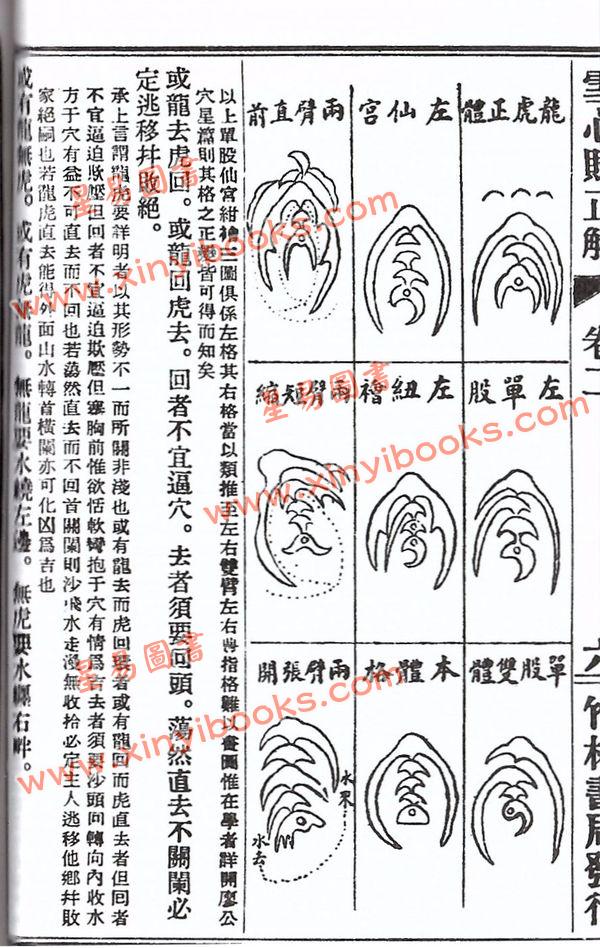 雪心賦正解
卷二
六
竹林書局發行
龍虎正體
左仙宮
兩臂直前
左單股
左紐襘
兩臂短縮
單股雙體
本體格
兩臂張開
水來
水去
以上單股仙宮紐襘三圖俱係左格其右格當以類推至左右雙臂左右異指格難以畫圖惟在學者詳閱廖公
穴星篇則其格之正變皆可得而知矣
或龍去虎回。或龍回虎去。回者不宜逼穴。去者須要回頭。蕩然直去不關闌必
定逃移幷敗絕。
承上言謂龍虎要詳明者以其形勢不一而所關非淺也或有龍去而虎回裹者或有龍回而虎直去者但回者
不宜逼迫欺壓但回者不宜逼迫欺壓但塞胸前惟欲恬軟彎抱于穴有情爲吉去者須要沙頭回轉向內收水
方于穴有益不可直去而不回也若蕩然直去而不回首關闌則沙飛水走漫無收拾必定主人逃移他鄉幷敗
家絕嗣也若龍虎直去能得外面山水轉首橫闌亦可化凶爲吉也
或有龍無虎。或有虎無龍。無龍要水繞左邊。無虎要水纏右畔。
星易圖書
www.xinyibooks.com
星易圖書
www.xinyibooks.com
星易圖書
www.xinyibooks.com